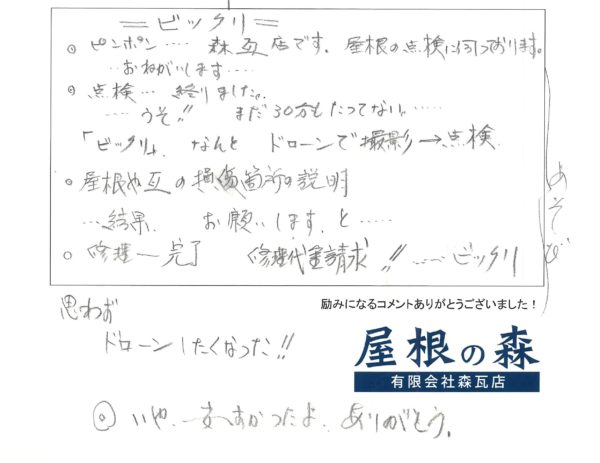 =ビックリ=
◎ ピンポン‥‥ 森瓦店です。屋根の点検に伺っております。
‥おねがいします‥‥
◎ 点検… 終りました。
‥‥うそ!! まだ30分もたってない。‥‥
「ビックリ」、なんと ドローンで撮影→点検
◎ 屋根や瓦の損傷箇所の説明
‥‥結果、 お願いします、と‥‥
○ 修理一完了 修理代金請求!! ‥‥ビックリ
あそび
思わず
ドローンしたくなった!!
励みになるコメントありがとうございました!
屋根の森
有限会社森瓦店
◎ いや、 かったよ、ありがとう。